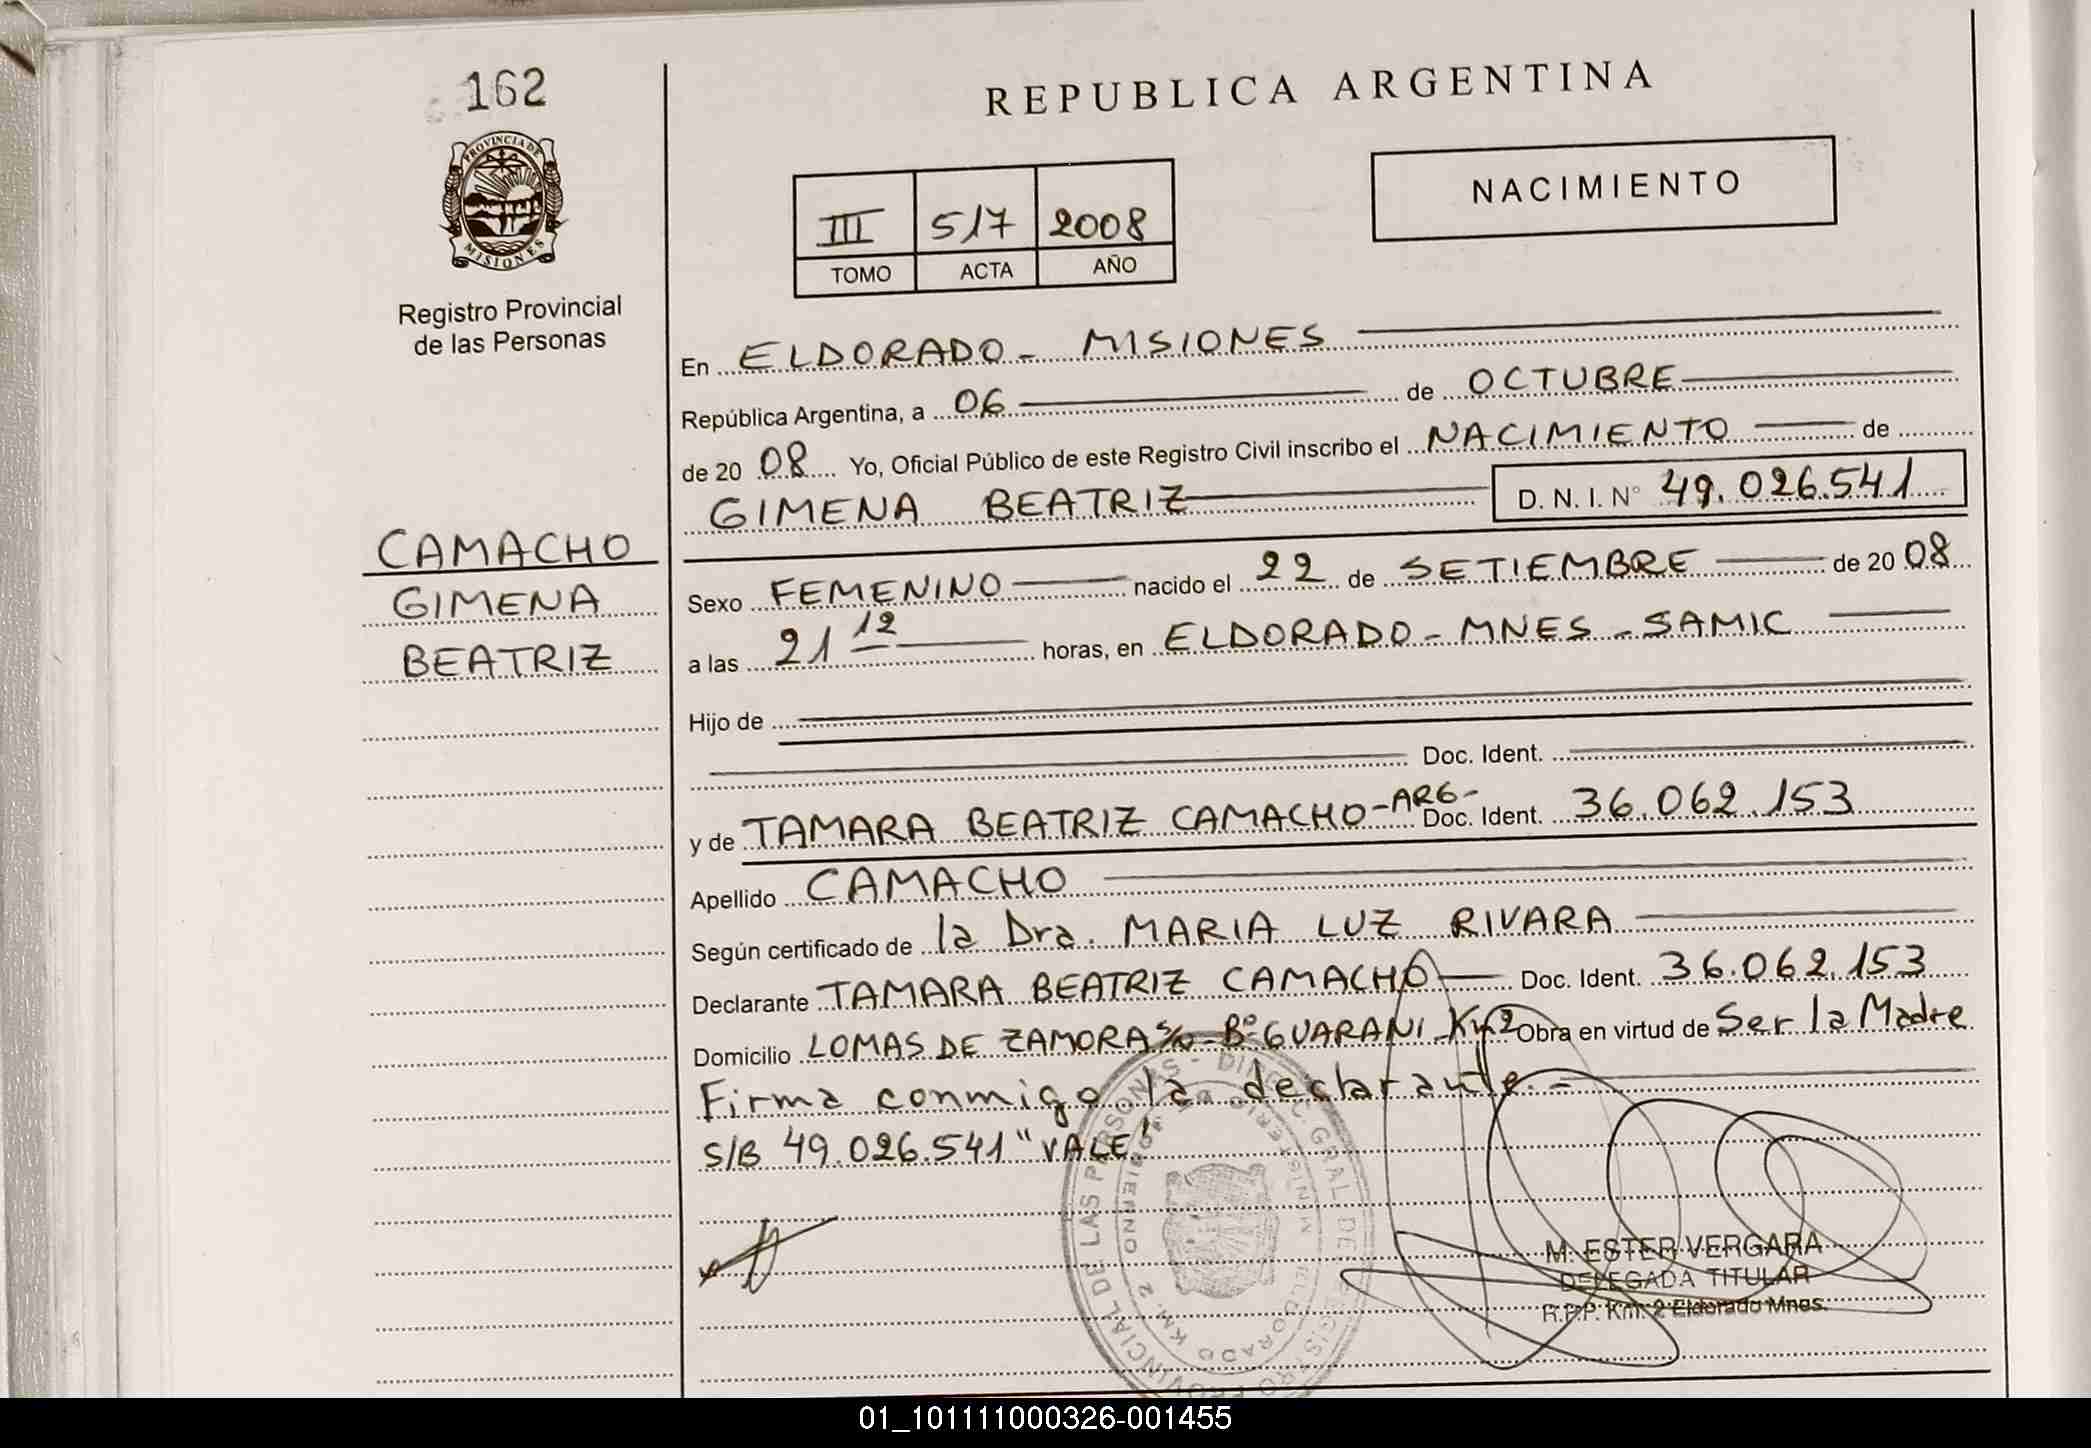 162
PROVINCIA DE
MISIONES
Registro Provincial
de las Personas
CAMACHO
GIMENA
BEATRIZ
REPUBLICA ARGENTINA
NACIMIENTO
III 517 2008
TOMO ACTA AÑO
En ELDORADO - MISIONES
República Argentina, a 06 de OCTUBRE
de 20 08 Yo, Oficial Público de este Registro Civil inscribo el NACIMIENTO de
GIMENA BEATRIZ D. N. I. N° 49.026.541
Sexo FEMENINO nacido el 22 de SETIEMBRE de 20 08
a las 21 12 horas, en ELDORADO - MNES - SAMIC
Hijo de
Doc. Ident.
y de TAMARA BEATRIZ CAMACHO -ARG- Doc. Ident. 36.062.153
Apellido CAMACHO
Según certificado de la Dra. MARIA LUZ RIVARA
Declarante TAMARA BEATRIZ CAMACHO Doc. Ident. 36.062.153
Domicilio LOMAS DE ZAMORA S/N - Bº GUARANI - Km 2 Obra en virtud de Ser la Madre
Firma conmigo la declarante.-
S/B 49.026.541 "VALE"
M. ESTER VERGARA
DELEGADA TITULAR
R.P.P. Km. 2 Eldorado Mnes.
01_101111000326-001455